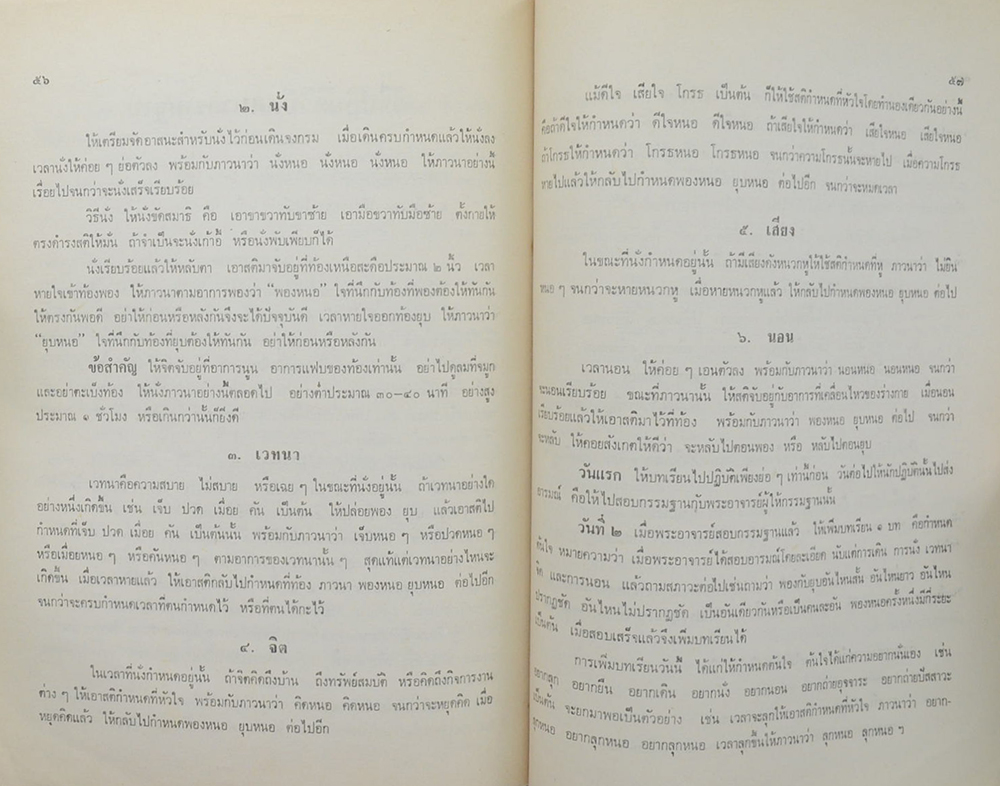 ๕๖
๒. นั่ง
ให้เตรียมจัดอาสนะสำหรับนั่งไว้ก่อนเดินจงกรม เมื่อเดินครบกำหนดแล้วให้นั่งลง
เวลานั่งให้ค่อย ๆ ย่อตัวลง พร้อมกับภาวนาว่า นั่งหนอ นั่งหนอ นั่งหนอ ให้ภาวนาอย่างนี้
เรื่อยไปจนกว่าจะนั่งเสร็จเรียบร้อย
วิธีนั่ง ให้นั่งขัดสมาธิ คือ เอาขาขวาทับขาซ้าย เอามือขวาทับมือซ้าย ตั้งกายให้
ตรงดำรงสติให้มั่น ถ้าจำเป็นจะนั่งเก้าอี้ หรือนั่งพับเพียบก็ได้
นั่งเรียบร้อยแล้วให้หลับตา เอาสติมาจับอยู่ที่ท้องเหนือสะดือประมาณ ๒ นิ้ว เวลา
หายใจเข้าท้องพอง ให้ภาวนาตามอาการพองว่า “พองหนอ” ใจที่นึกกับท้องที่พองต้องให้ทันกัน
ให้ตรงกันพอดี อย่าให้ก่อนหรือหลังกันจึงจะได้ปัจจุบันดี เวลาหายใจออกท้องยุบ ให้ภาวนาว่า
“ยุบหนอ” ใจที่นึกกับท้องที่ยุบต้องให้ทันกัน อย่าให้ก่อนหรือหลังกัน
ข้อสำคัญ ให้จิตจับอยู่ที่อาการนูน อาการแฟบของท้องเท่านั้น อย่าไปดูลมที่จมูก
และอย่าตะเบ็งท้อง ให้นั่งภาวนาอย่างนี้ตลอดไป อย่างต่ำประมาณ ๓๐–๔๐ นาที อย่างสูง
ประมาณ ๑ ชั่วโมง หรือเกินกว่านั้นก็ยิ่งดี
๓. เวทนา
เวทนาคือความสบาย ไม่สบาย หรือเฉย ๆ ในขณะที่นั่งอยู่นั้น ถ้าเวทนาอย่างใด
อย่างหนึ่งเกิดขึ้น เช่น เจ็บ ปวด เมื่อย คัน เป็นต้น ให้ปล่อยพอง ยุบ แล้วเอาสติไป
กำหนดที่เจ็บ ปวด เมื่อย คัน เป็นต้นนั้น พร้อมกับภาวนาว่า เจ็บหนอ ๆ หรือปวดหนอ ๆ
หรือเมื่อยหนอ ๆ หรือคันหนอ ๆ ตามอาการของเวทนานั้น ๆ สุดแท้แต่เวทนาอย่างไหนจะ
เกิดขึ้น เมื่อเวลาหายแล้ว ให้เอาสติกลับไปกำหนดที่ท้อง ภาวนา พองหนอ ยุบหนอ ต่อไปอีก
จนกว่าจะครบกำหนดเวลาที่ตนกำหนดไว้ หรือที่ตนได้กะไว้
๔. จิต
ในเวลาที่นั่งกำหนดอยู่นั้น ถ้าจิตคิดถึงบ้าน ถึงทรัพย์สมบัติ หรือคิดถึงกิจการงาน
ต่าง ๆ ให้เอาสติกำหนดที่หัวใจ พร้อมกับภาวนาว่า คิดหนอ คิดหนอ จนกว่าจะหยุดคิด เมื่อ
หยุดคิดแล้ว ให้กลับไปกำหนดพองหนอ ยุบหนอ ต่อไปอีก
๕๗
แม้ดีใจ เสียใจ โกรธ เป็นต้น ก็ให้ใช้สติกำหนดที่หัวใจโดยทำนองเดียวกันอย่างนี้
คือถ้าดีใจให้กำหนดว่า ดีใจหนอ ดีใจหนอ ถ้าเสียใจให้กำหนดว่า เสียใจหนอ เสียใจหนอ
ถ้าโกรธให้กำหนดว่า โกรธหนอ โกรธหนอ จนกว่าความโกรธนั้นจะหายไป เมื่อความโกรธ
หายไปแล้วให้กลับไปกำหนดพองหนอ ยุบหนอ ต่อไปอีก จนกว่าจะหมดเวลา
๕. เสียง
ในขณะที่นั่งกำหนดอยู่นั้น ถ้ามีเสียงดังหนวกหูให้ใช้สติกำหนดที่หู ภาวนาว่า ได้ยิน
หนอ ๆ จนกว่าจะหายหนวกหู เมื่อหายหนวกหูแล้ว ให้กลับไปกำหนดพองหนอ ยุบหนอ ต่อไป
๖. นอน
เวลานอน ให้ค่อย ๆ เอนตัวลง พร้อมกับภาวนาว่า นอนหนอ นอนหนอ จนกว่า
จะนอนเรียบร้อย ขณะที่ภาวนานั้น ให้สติจับอยู่กับอาการที่เคลื่อนไหวของร่างกาย เมื่อนอน
เรียบร้อยแล้วให้เอาสติมาไว้ที่ท้อง พร้อมกับภาวนาว่า พองหนอ ยุบหนอ ต่อไป จนกว่า
จะหลับ ให้คอยสังเกตให้ดีว่า จะหลับไปตอนพอง หรือ หลับไปตอนยุบ
วันแรก ให้บทเรียนไปปฏิบัติเพียงย่อ ๆ เท่านี้ก่อน วันต่อไปให้นักปฏิบัตินั้นไปส่ง
อารมณ์ คือให้ไปสอบกรรมฐานกับพระอาจารย์ผู้ให้กรรมฐานนั้น
วันที่ ๒ เมื่อพระอาจารย์สอบกรรมฐานแล้ว ให้เพิ่มบทเรียน ๑ บท คือกำหนด
ต้นใจ หมายความว่า เมื่อพระอาจารย์ได้สอบอารมณ์โดยละเอียด นับแต่การเดิน การนั่ง เวทนา
จิต และการนอน แล้วถามสภาวะต่อไปเช่นถามว่า พองกับยุบอันไหนสั้น อันไหนยาว อันไหน
ปรากฏชัด อันไหนไม่ปรากฏชัด เป็นอันเดียวกันหรือเป็นคนละอัน พองหนอครั้งหนึ่งมีกี่ระยะ
เป็นต้น เมื่อสอบเสร็จแล้วจึงเพิ่มบทเรียนได้
การเพิ่มบทเรียนวันนี้ ได้แก่ให้กำหนดต้นใจ ต้นใจได้แก่ความอยากนั่นเอง เช่น
อยากลุก อยากยืน อยากเดิน อยากนั่ง อยากนอน อยากถ่ายอุจจาระ อยากถ่ายปัสสาวะ
เป็นต้น จะยกมาพอเป็นตัวอย่าง เช่น เวลาจะลุกให้เอาสติกำหนดที่หัวใจ ภาวนาว่า อยาก-
ลุกหนอ อยากลุกหนอ อยากลุกหนอ เวลาลุกขึ้นให้ภาวนาว่า ลุกหนอ ลุกหนอ ๆ